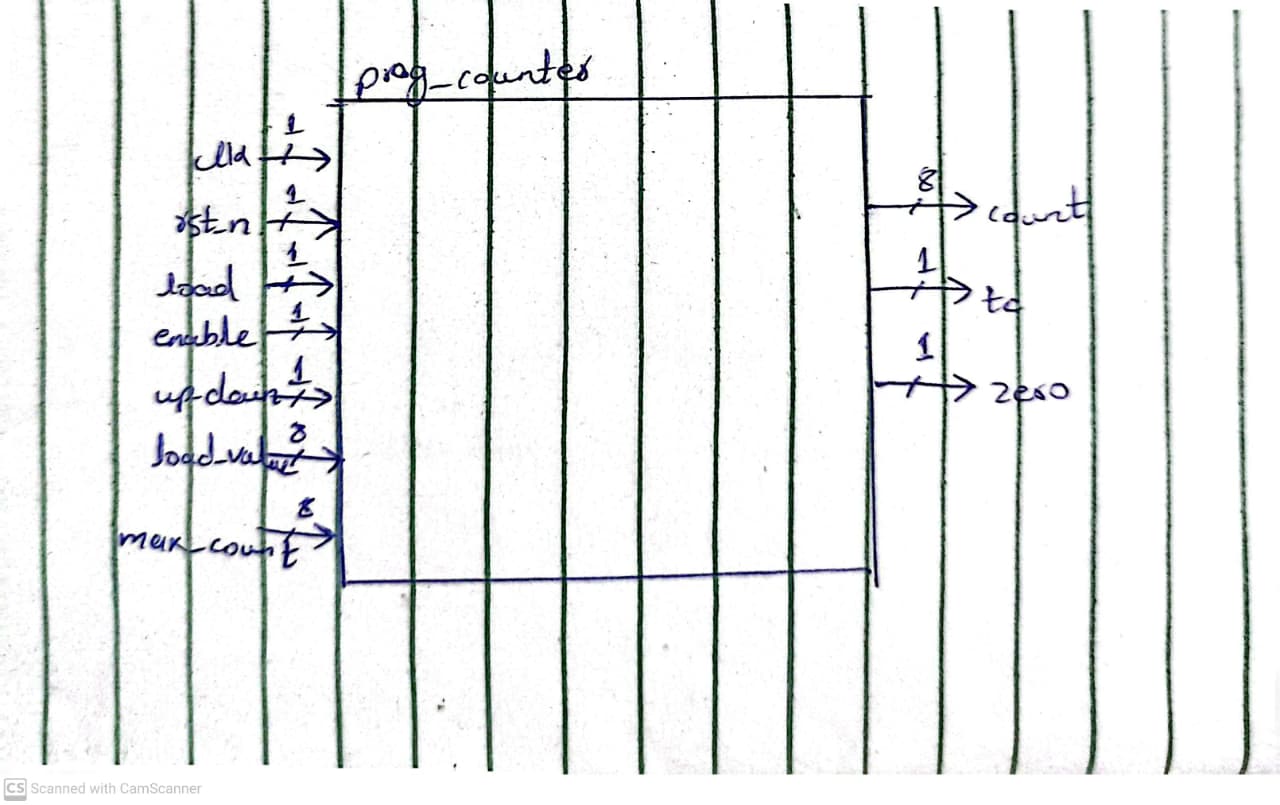 prog_counter
1
clk
1
rst_n
1
load
1
enable
1
up-down
8
load_value
8
max_count
8
count
1
tc
1
zero
CS Scanned with CamScanner